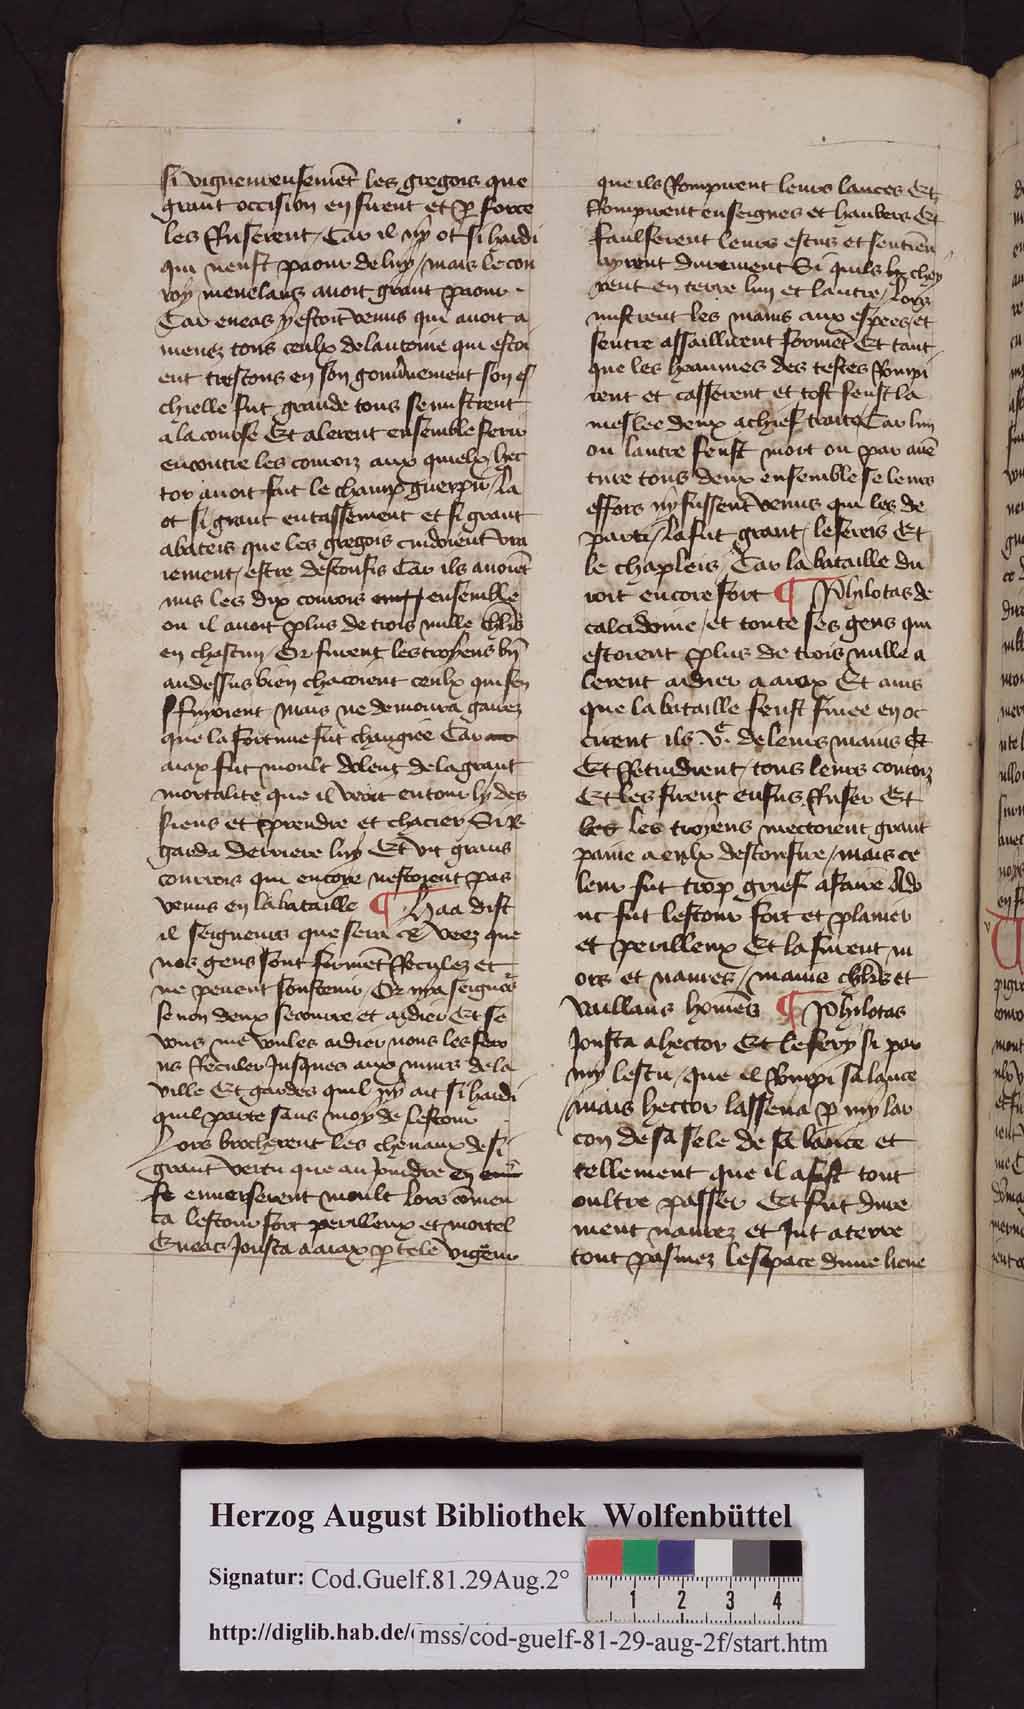 si viguereusemēt les gregois que
grant occision en firent et p force
les ffuserent / Car il ny ot si hardi
qui neust paour de luy / mais le con
roy menelaus auoit grant paour
Car eneas y estoit venus qui auoit a
menez tous ceulx de lantoine qui estoi
ent trestous en son gouunement son es
chielle fut grande tous se mistrent
a la course Et alerent ensemble ferir
encontre les conroiz aux quielx hec
tor auoit fait le champ guerpir / la
ot si grant entassement et si grant
abateis que les gregois cuidoient vra
iement / estre desconfis Car ils auoiēt
mis les dix conrois ensemble
ou il auoit plus de trois mille chlrs
en chascun / Or furent les troyens bn̄
au dessus bien chacoient ceulx qui sen
ffuyoient mais ne demoura gaires
que la fortune fut changiee Car
aiax fut moult dolent de la grant
mortalite que il veoit entour ly des
siens et prendre et chacier / Si R
garda derriere luy Et vit grans
conrois qui encore nestoient pas
venus en la bataille ¶ Haa dist
il seigneurs que sera ce veez que
nos gens sont formēt Reculez et
ne peuent soustenir / Or mes seignrs
se non deux secourre et aidier Et se
vous me voules aidier nous les fero
ns Reculer Jusques aux murs de la
ville Et gardes quil ny ait si hardi
quil parte sans moy de lestour
Lors brocherent les cheuaux de si
grant vertu que au Joindre
se enuerserent moult lors comen
ca lestour fort perilleux et mortel
Eneas Jousta a aiax p tele vigeur
que ils Rompirent leurs lances Et
Rompirent enseignes et haubers Et
faulserent leurs escus et sentreen
uyrent durement Si quils chey
rent en terre lun et lautre / Lors
mistrent les mains aux espees / et
sentre assaillirent formēt Et tant
que les heaumes des testes Rompi
rent et casserent et tost feust la
meslee deux a chief traite Car lun
ou lautre feust mort ou par auē
ture tous deux ensemble se leurs
effors ny fussent venus qui les de
parti / La fut grant / le fereis Et
le chapleis / Car la bataille du
roit encore fort ¶ Philotas de
calcidoine / et toute ses gens qui
estoient plus de trois mille a
lerent aidier a aiax Et ains
que la bataille feust finee en oc
cirent ils .vc. de leurs mains Et
Et Restindrent / tous leurs conroiz
Et les firent ensus Ruser Et
les troyens mectoient grant
paine a eulx desconfire / mais ce
leur fut trop grief a faire Ado
nc fut lestour fort et planier
et perilleux Et la furent m
ors et naures / mains chlrs et
vaillans homes ¶ Philotas
Jousta a hector Et le fery si par
my lescu / que il Rompi sa lance
mais hector lassena p my lar
con de sa sele de sa lance et
tellement que il a fist tout
oultre passer Et fut dure
ment naurez et Jut a terre
tout pasmez lespace dune lieue
Herzog August Bibliothek Wolfenbüttel
Signatur: Cod.Guelf.81.29Aug.2°
1 2 3 4
http://diglib.hab.de/ mss/cod-guelf-81-29-aug-2f/start.htm